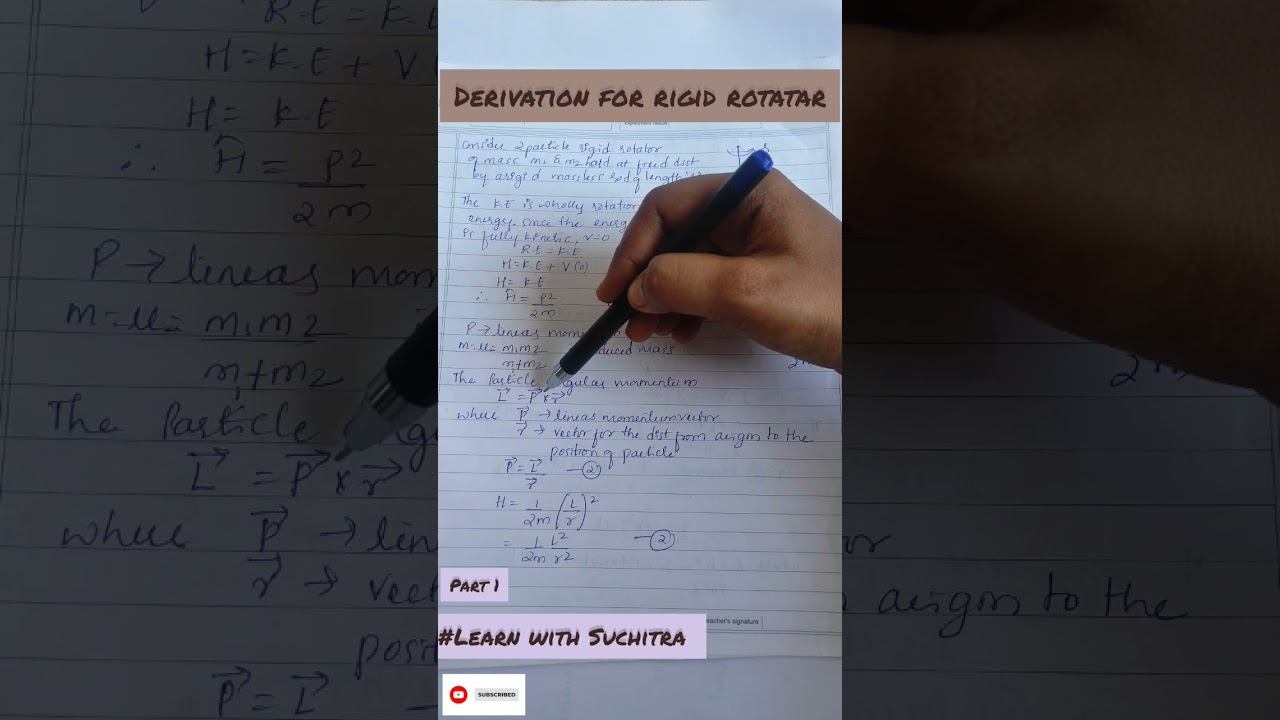 DERIVATION FOR RIGID ROTATAR
Consider 2particle rigid rotator
of mass m1 & m2 hard at fixed dist
by a rigid massless rod of length
The KE is wholly rotation
energy. since the energ
is fully kinetic, V=0
R.E = K.E
H=K.E + V(0)
H = K.E
∴ Ĥ = P2
2m
P → linear mom
m=μ= m1m2 duced mass
m+m2 2m
The Particle ngular momentum
L⃗ = P⃗ x r⃗
where P⃗ → linear momentum vector
r⃗ → vector for the dist from airgon to the
position of particle
P⃗ = L⃗ —②
r⃗
H = 1 (L)2
2m (r)
= 1 L2 —②
2m r2
PART 1
eacher's signature
#LEARN WITH SUCHITRA
SUBSCRIBED